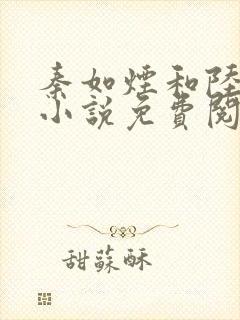 秦如煙和陸
小說免費閱
甜蘇酥